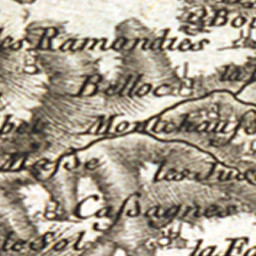 Bou
les Ramondies
Belloc
la
Montchauſ
Maſse
les Jus
Caſsagnes
le Sol
la Fa